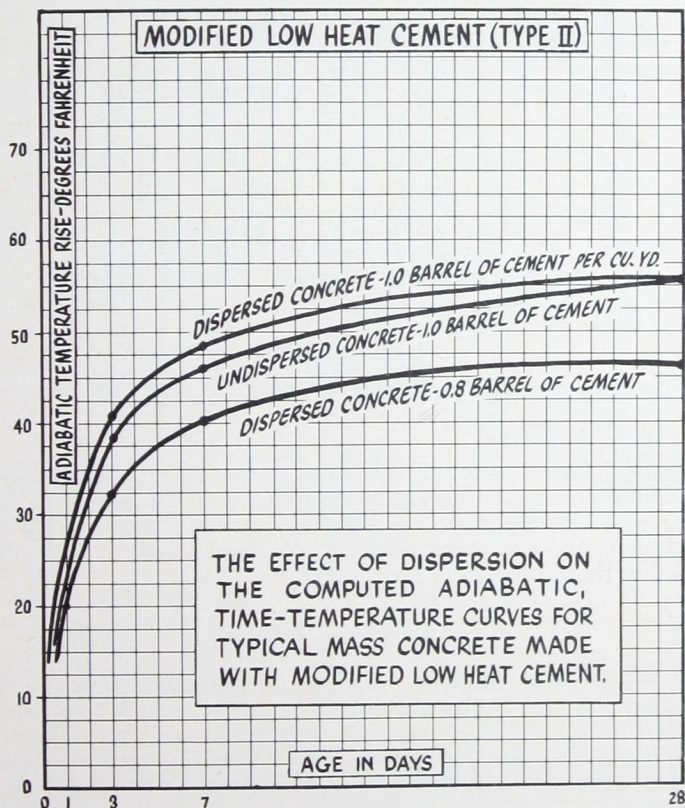 MODIFIED LOW HEAT CEMENT (TYPE II)
ADIABATIC TEMPERATURE RISE-DEGREES FAHRENHEIT
70
60
50
40
30
20
10
0
DISPERSED CONCRETE-1.0 BARREL OF CEMENT PER CU. YD.
UNDISPERSED CONCRETE-1.0 BARREL OF CEMENT
DISPERSED CONCRETE-0.8 BARREL OF CEMENT
THE EFFECT OF DISPERSION ON
THE COMPUTED ADIABATIC,
TIME-TEMPERATURE CURVES FOR
TYPICAL MASS CONCRETE MADE
WITH MODIFIED LOW HEAT CEMENT.
AGE IN DAYS
0 1 3 7 28